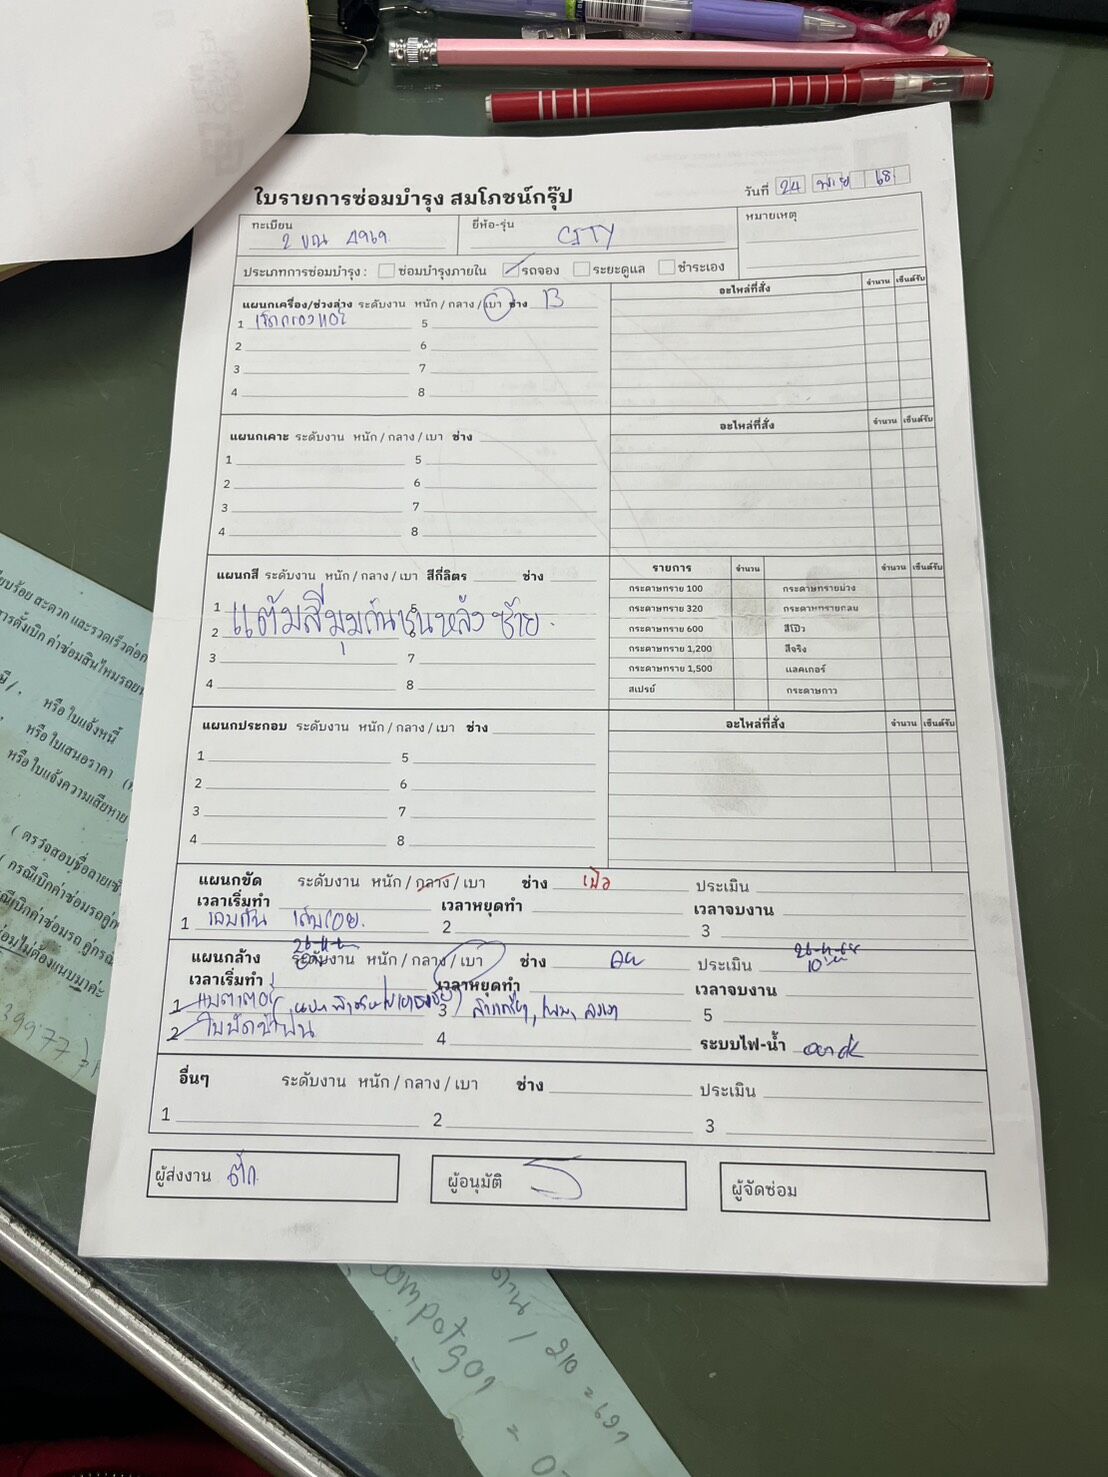 ใบรายการซ่อมบำรุง สมโภชน์กรุ๊ป
วันที่ 24 พ.ย 68
ทะเบียน 2 ขณ 4969
ยี่ห้อ-รุ่น CITY
หมายเหตุ
ประเภทการซ่อมบำรุง : ซ่อมบำรุงภายใน รถจอง ระยะดูแล ชำระเอง
แผนกเครื่อง/ช่วงล่าง ระดับงาน หนัก / กลาง / เบา ช่าง B
1 5
2 6
3 7
4 8
อะไหล่ที่สั่ง จำนวน เซ็นต์รับ
แผนกเคาะ ระดับงาน หนัก / กลาง / เบา ช่าง
1 5
2 6
3 7
4 8
อะไหล่ที่สั่ง จำนวน เซ็นต์รับ
แผนกสี ระดับงาน หนัก / กลาง / เบา สีกี่ลิตร ช่าง
1 5
2 แต้มสีมุมกันชนหลังซ้าย
3 7
4 8
รายการ จำนวน จำนวน เซ็นต์รับ
กระดาษทราย 100 กระดาษทรายม่วง
กระดาษทราย 320 กระดาษทรายกลม
กระดาษทราย 600 สีโป๊ว
กระดาษทราย 1,200 สีจริง
กระดาษทราย 1,500 แลคเกอร์
สเปรย์ กระดาษกาว
แผนกประกอบ ระดับงาน หนัก / กลาง / เบา ช่าง
1 5
2 6
3 7
4 8
อะไหล่ที่สั่ง จำนวน เซ็นต์รับ
แผนกขัด ระดับงาน หนัก / กลาง / เบา ช่าง ประเมิน
เวลาเริ่มทำ เวลาหยุดทำ เวลาจบงาน
1 ลบรอย 2 3
แผนกล้าง ระดับงาน หนัก / กลาง / เบา ช่าง ประเมิน
เวลาเริ่มทำ เวลาหยุดทำ เวลาจบงาน
1 แบตเตอรี่ 3 5
2 ใบปัดน้ำฝน 4 ระบบไฟ-น้ำ
อื่นๆ ระดับงาน หนัก / กลาง / เบา ช่าง ประเมิน
1 2 3
ผู้ส่งงาน ผู้อนุมัติ ผู้จัดซ่อม
หรือ ใบแจ้งหนี้
หรือ ใบเสนอราคา
หรือ ใบแจ้งความเสียหาย
39977
210 = 697